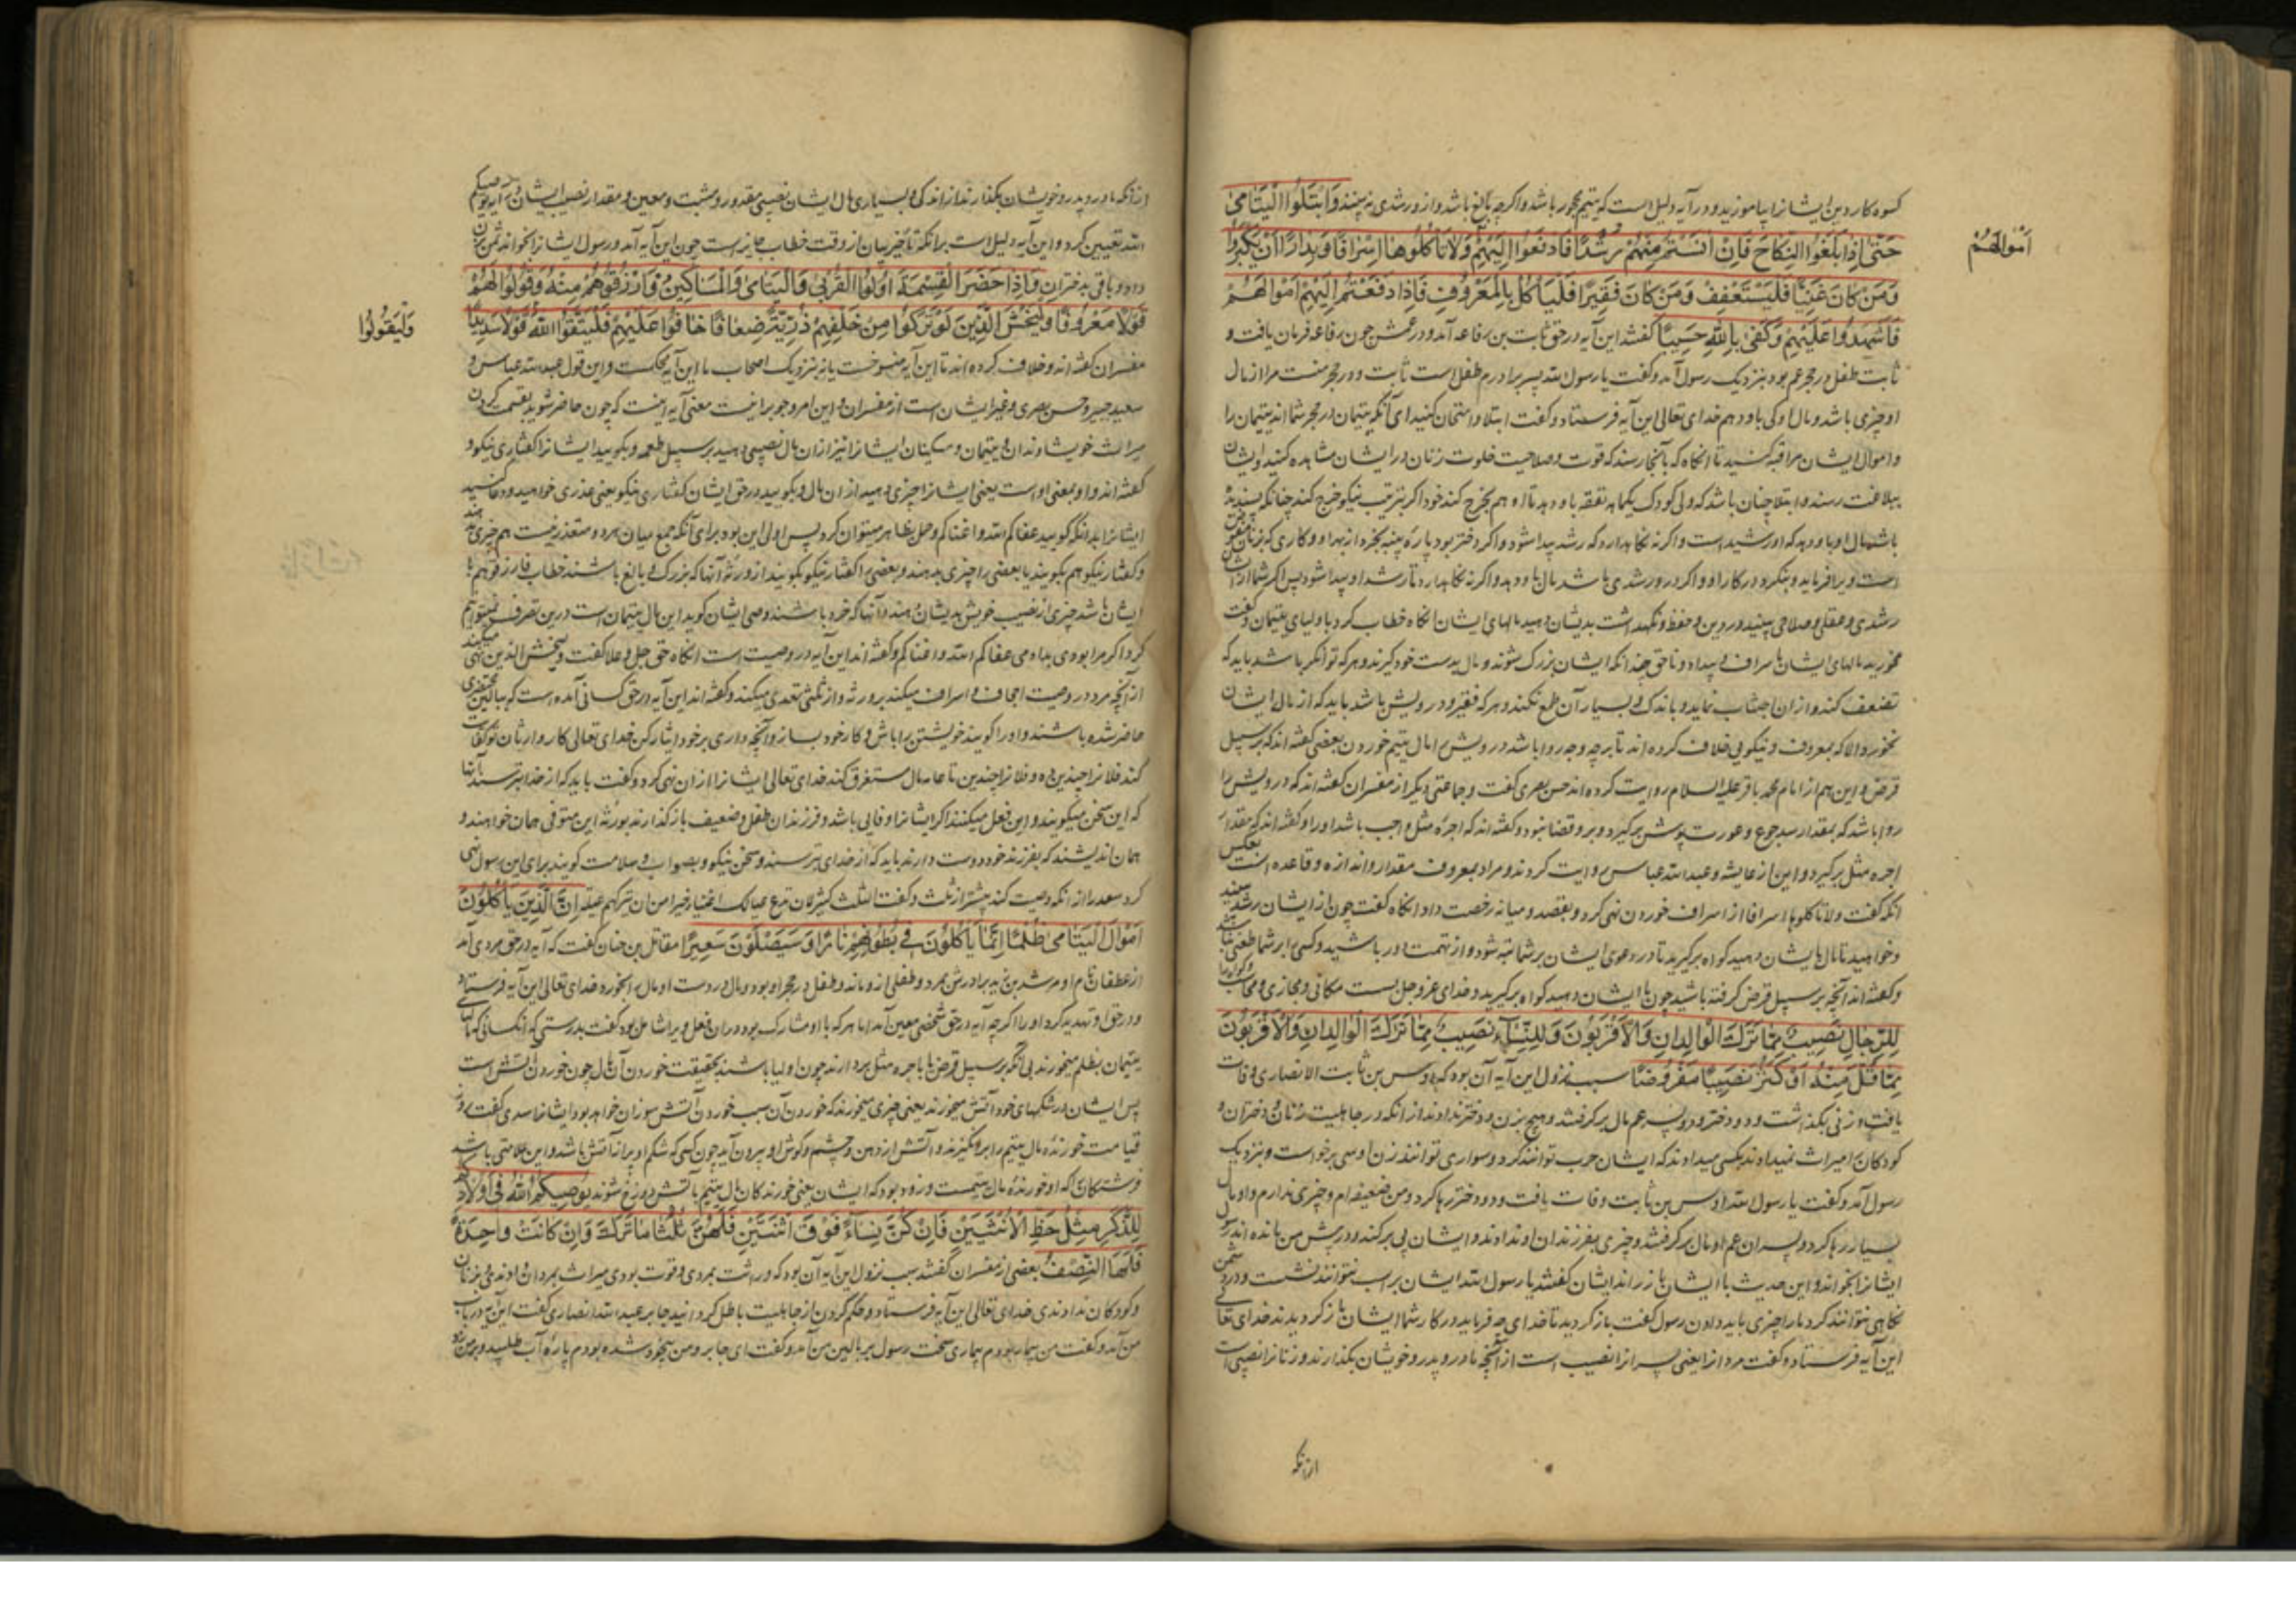 کسوه کار دین ایشانرا بیاموزید و در آیه دلیل است که یتیم محجور باشد و اگرچه بالغ باشد و از و رشدی نه بینند وَابْتَلُوا الْيَتَامَىٰ
حَتّىٰ اِذَا بَلَغُوا النِّكَاحَ فَاِنْ آنَسْتُمْ مِنْهُمْ رُشْدًا فَادْفَعُوا اِلَيْهِمْ وَلَا تَأْكُلُوهَا اِسْرَافًا وَبِدَارًا اَنْ يَكْبَرُوا
اَمْوَالَهُمْ
وَمَنْ كَانَ غَنِيًّا فَلْيَسْتَعْفِفْ وَمَنْ كَانَ فَقِيرًا فَلْيَأْكُلْ بِالْمَعْرُوفِ فَاِذَا دَفَعْتُمْ اِلَيْهِمْ اَمْوَالَهُمْ
فَاَشْهِدُوا عَلَيْهِمْ وَكَفَىٰ بِاللّٰهِ حَسِيبًا کفتند این آیه در حق ثابت بن رفاعه آمد و در عمش چون رفاعه فرمان یافت و
ثابت طفل در حجر عم بود بنزدیک رسول آمد و کفت یا رسول الله پسر برادرم طفل است ثابت و در حجر منست مرا از مال
او چیزی باشد و مال او کی باو دهم خدای تعالی این آیه فرستاد و کفت ابتلا و امتحان کنید ای آنکه یتیمان در حجر شما اند یتیمان را
و اموال ایشان مراقبه کنید تا آنکاه که بآنجا رسند که قوت و صلاحیت خلوت زنان در ایشان مشاهده کنید و ایشان
ببلاغت رسند و ابتلا چنان باشد که ولی کودک یکماهه نفقه باو دهد تا او هم بخرج کند خود اگر بترتیب نیکو خرج کند چنانکه پسندیده
باشد مال او باو دهد که او رشید است و اگر نه نکاه دارد که رشد پیدا شود و اگر دختر بود پاره پنبه بخرد از بهر او و کاری که بزنان
است ویرا فرماید و بنکرد در کار او و اگر در و رشدی باشد مال باو دهد و اگر نه نکاه دارد تا رشد او پیدا شود پس اگر شما از ایشان
رشدی و عقلی و صلاحی ببینید در دین و حفظ و نکهداشت بدیشان دهید مالهای ایشان آنکاه خطاب کرد با اولیای یتیمان و کفت
مخورید مالهای ایشان باسراف و بیداد و ناحق چندانکه ایشان بزرک شوند و مال بدست خود کیرند و هر که توانکر باشد باید که
تضعف کند و از آن اجتناب نماید و باندک و بسیار آن طمع نکند و هر که فقیر و درویش باشد باید که از مال ایشان
نخورد الا که بمعروف و نیکویی خلاف کرده اند تا بر چه وجه روا باشد درویش را مال یتیم خوردن بعضی کفته اند که بر سبیل
قرض و این هم از امام محمد باقر علیه السلام روایت کرده اند حسن بصری کفت و جماعتی دیکر از مفسران کفته اند که درویش را
روا باشد که بمقدار سد جوع و عورت پوش برکیرد و برو قضا نبود و کفته اند که اجره مثل واجب باشد او را و کفته اند که مقدار
اجره مثل برکیرد و این از عایشه و عبدالله عباس روایت کردند و مراد بمعروف مقدار و اندازه و قاعده است
آنکه کفت ولا تاکلوها اسرافا از اسراف خوردن نهی کرد و بقصد و میانه رخصت داد آنکاه کفت چون از ایشان رشد بینید
و خواهید تا مال بایشان دهید کواه برکیرید تا در دعوی ایشان بر شما نبود و از تهمت دور باشید و کسی را بر شما طعنی نباشد
و کفته اند آنچه بر سبیل قرض کرفته باشید چون با ایشان دهید کواه برکیرید و خدای عز و جل بست مکافی و مجازی و محاسب
لِلرِّجَالِ نَصِيبٌ مِمَّا تَرَكَ الْوَالِدَانِ وَالْاَقْرَبُونَ وَلِلنِّسَآءِ نَصِيبٌ مِمَّا تَرَكَ الْوَالِدَانِ وَالْاَقْرَبُونَ
مِمَّا قَلَّ مِنْهُ اَوْ كَثُرَ نَصِيبًا مَفْرُوضًا سبب نزول این آیه آن بود که اوس بن ثابت الانصاری وفات
یافت و از زنی بکذاشت و دو دختر و دو پسر عم مال برکرفتند و هیچ بزن و دختر ندادند از آنکه در جاهلیت زنان و دختران و
کودکان را میراث نمیدادند بکسی میدادند که ایشان حرب توانند کرد و سواری توانند زن اوس برخواست و بنزدیک
رسول آمد و کفت یا رسول الله اوس بن ثابت وفات یافت و دو دختر رها کرد و من ضعیفه ام و چیزی ندارم و او مال
بسیار رها کرد و پسران عم او مال برکرفتند و چیزی بفرزندان او ندادند و ایشان پی برکند و در پیش من مانده اند رسول
ایشانرا بخواند و این حدیث با ایشان باز راند ایشان کفتند یا رسول الله ایشان بر اسب نتوانند نشست و در دشمن
نکاهی نتوانند کرد ما را چیزی باید دادن رسول کفت بازکردید تا خدای چه فرماید در کار شما ایشان بازکردیدند خدای تعالی
این آیه فرستاد و کفت مردانرا یعنی پسرانرا نصیب است از آنچه مادر و پدر و خویشان بکذارند و زنانرا نصیبی است
ازآنکه
ازآنکه مادر و پدر و خویشان بکذارند از اندکی و بسیاری مال ایشان نصیبی مقدور و مثبت و معین و مقدار نصیب ایشان در آیه یوصیکم
الله تعیین کرد و این آیه دلیل است برآنکه تاخیر بیان از وقت خطاب جایز است چون این آیه آمد و رسول ایشانرا بخواند ثمن بزن
داد و باقی بدختران وَاِذَا حَضَرَ الْقِسْمَةَ اُولُوا الْقُرْبىٰ وَالْيَتَامىٰ وَالْمَسَاكِينُ فَارْزُقُوهُمْ مِنْهُ وَقُولُوا لَهُمْ
قَوْلًا مَعْرُوفًا وَلْيَخْشَ الَّذِينَ لَوْ تَرَكُوا مِنْ خَلْفِهِمْ ذُرِّيَّةً ضِعَافًا خَافُوا عَلَيْهِمْ فَلْيَتَّقُوا اللّٰهَ قَوْلًا سَدِيدًا
وَلْيَقُولُوا
مفسران کفته اند و خلاف کرده اند تا این آیه منسوخست یا نه بنزدیک اصحاب ما این آیه محکمست و این قول عبدالله عباس و
سعید جبیر و حسن بصری و غیر ایشان است از مفسران و این امر وجوب راست معنی آیه اینست که چون حاضر شوید بقسمت کردن
میراث خویشاوندان و یتیمان و مسکینان ایشانرا نیز از آن مال نصیبی دهید بر سبیل طعمه و بکویید ایشانرا کفتاری نیکو و
کفته اند واو بمعنی او است یعنی ایشانرا چیزی دهید از آن مال و بکویید در حق ایشان کفتاری نیکو یعنی عذری خواهید و دعا کنید
ایشانرا بدانکه کویید عفاکم الله و اغناکم و حمل بظاهر میتوان کرد پس اولی این بود برای آنکه جمع میان هر دو متعذر نیست هم چیزی دهند
و کفتار نیکو هم بکویند یا بعضی را چیزی بدهند و بعضی را کفتار نیکو بکویند از ورثه آنها که بزرک و بالغ باشند خطاب فارزقوهم با
ایشان باشد چیزی از نصیب خویش بدیشان دهند و آنها که خرد باشند وصی ایشان کوید این مال یتیمان است درین تصرف نمیتوانم
کرد اگر مرا بودی بدادمی عفاکم الله و اغناکم و کفته اند این آیه در وصیت است آنکاه حق جل و علا کفت و لیخش الذین نهی میکند
از آنچه مرد در وصیت اجحاف و اسراف میکند بر ورثه و از ثلثی تعدی میکند و کفته اند این آیه در حق کسانی آمده است که ببالین محتضری
حاضر شده باشند و او را کویند خویشتن را باش و کار خود بساز و آنچه داری بر خود ایثار کن خدای تعالی کار وارثان تو کفایت
کند فلانرا چندین ده و فلانرا چندین تا عامه مال مستغرق کند خدای تعالی ایشانرا از آن نهی کرد و کفت باید که از خدا بترسند آنها
که این سخن میکویند و این فعل میکنند اگر ایشانرا وفاتی باشد و فرزندان طفل و ضعیف بازکذارند بورثه این متوفی همان خواهند و
همان اندیشند که بفرزند خود دوست دارند باید که از خدای بترسند و سخن نیکو و بصواب و سلامت کویند برای این رسول نهی
کرد سعد را از آنکه وصیت کند بیشتر از ثلث و کفت الثلث کثیر لان تدع عیالک اغنیاء خیر من ان تترکهم عیلة اِنَّ الَّذِينَ يَأْكُلُونَ
اَمْوَالَ الْيَتَامىٰ ظُلْمًا اِنَّمَا يَأْكُلُونَ فِي بُطُونِهِمْ نَارًا وَسَيَصْلَوْنَ سَعِيرًا مقاتل بن حنان کفت که آیه در حق مردی آمد
از غطفان نام او مرشد بن زید برادرش بمرد و طفلی از و ماند و طفل در حجر او بود و مال در دست او مال را بخورد خدای تعالی این آیه فرستاد
و در حق او تهدید کرد او را اگرچه آیه در حق شخصی معین آمد اما هر که با او مشارک بود در آن فعل ویرا شامل بود کفت بدرستی که آنکسانی که مالهای
یتیمان بظلم میخورند بی آنکه بر سبیل قرض یا باجره مثل بردارند چون اولیا باشند بحقیقت خوردن آن مال چون خوردن آتش است
پس ایشان در شکمهای خود آتش میخورند یعنی چیزی میخورند که خوردن آن سبب خوردن آتش سوزان خواهد بود ایشانرا سدی کفت روز
قیامت خورنده مال یتیم را برانکیزند و آتش از دهن و چشم و کوش او بیرون آید چون کسی که شکم او پر از آتش باشد و این علامتی باشد
فرشتکان را که او خورنده مال یتیمست و زود بود که ایشان یعنی خورندکان مال یتیم بآتش دوزخ شوند يُوصِيكُمُ اللّٰهُ فِي اَوْلَادِكُمْ
لِلذَّكَرِ مِثْلُ حَظِّ الْاُنْثَيَيْنِ فَاِنْ كُنَّ نِسَاءً فَوْقَ اثْنَتَيْنِ فَلَهُنَّ ثُلُثَا مَا تَرَكَ وَاِنْ كَانَتْ وَاحِدَةً
فَلَهَا النِّصْفُ بعضی از مفسران کفتند سبب نزول این آیه آن بود که وراثت بمردی و قوت بودی میراث بمردان دادندی و بزنان
و کودکان ندادندی خدای تعالی این آیه فرستاد و حکم کردن از جاهلیت باطل کردانید جابر عبدالله انصاری کفت این آیه در باب
من آمد و کفت من بیمار بودم بیماری سخت رسول بر بالین من آمد و کفت ای جابر و من بیخود شده بودم پاره آب طلبید و بر من زد